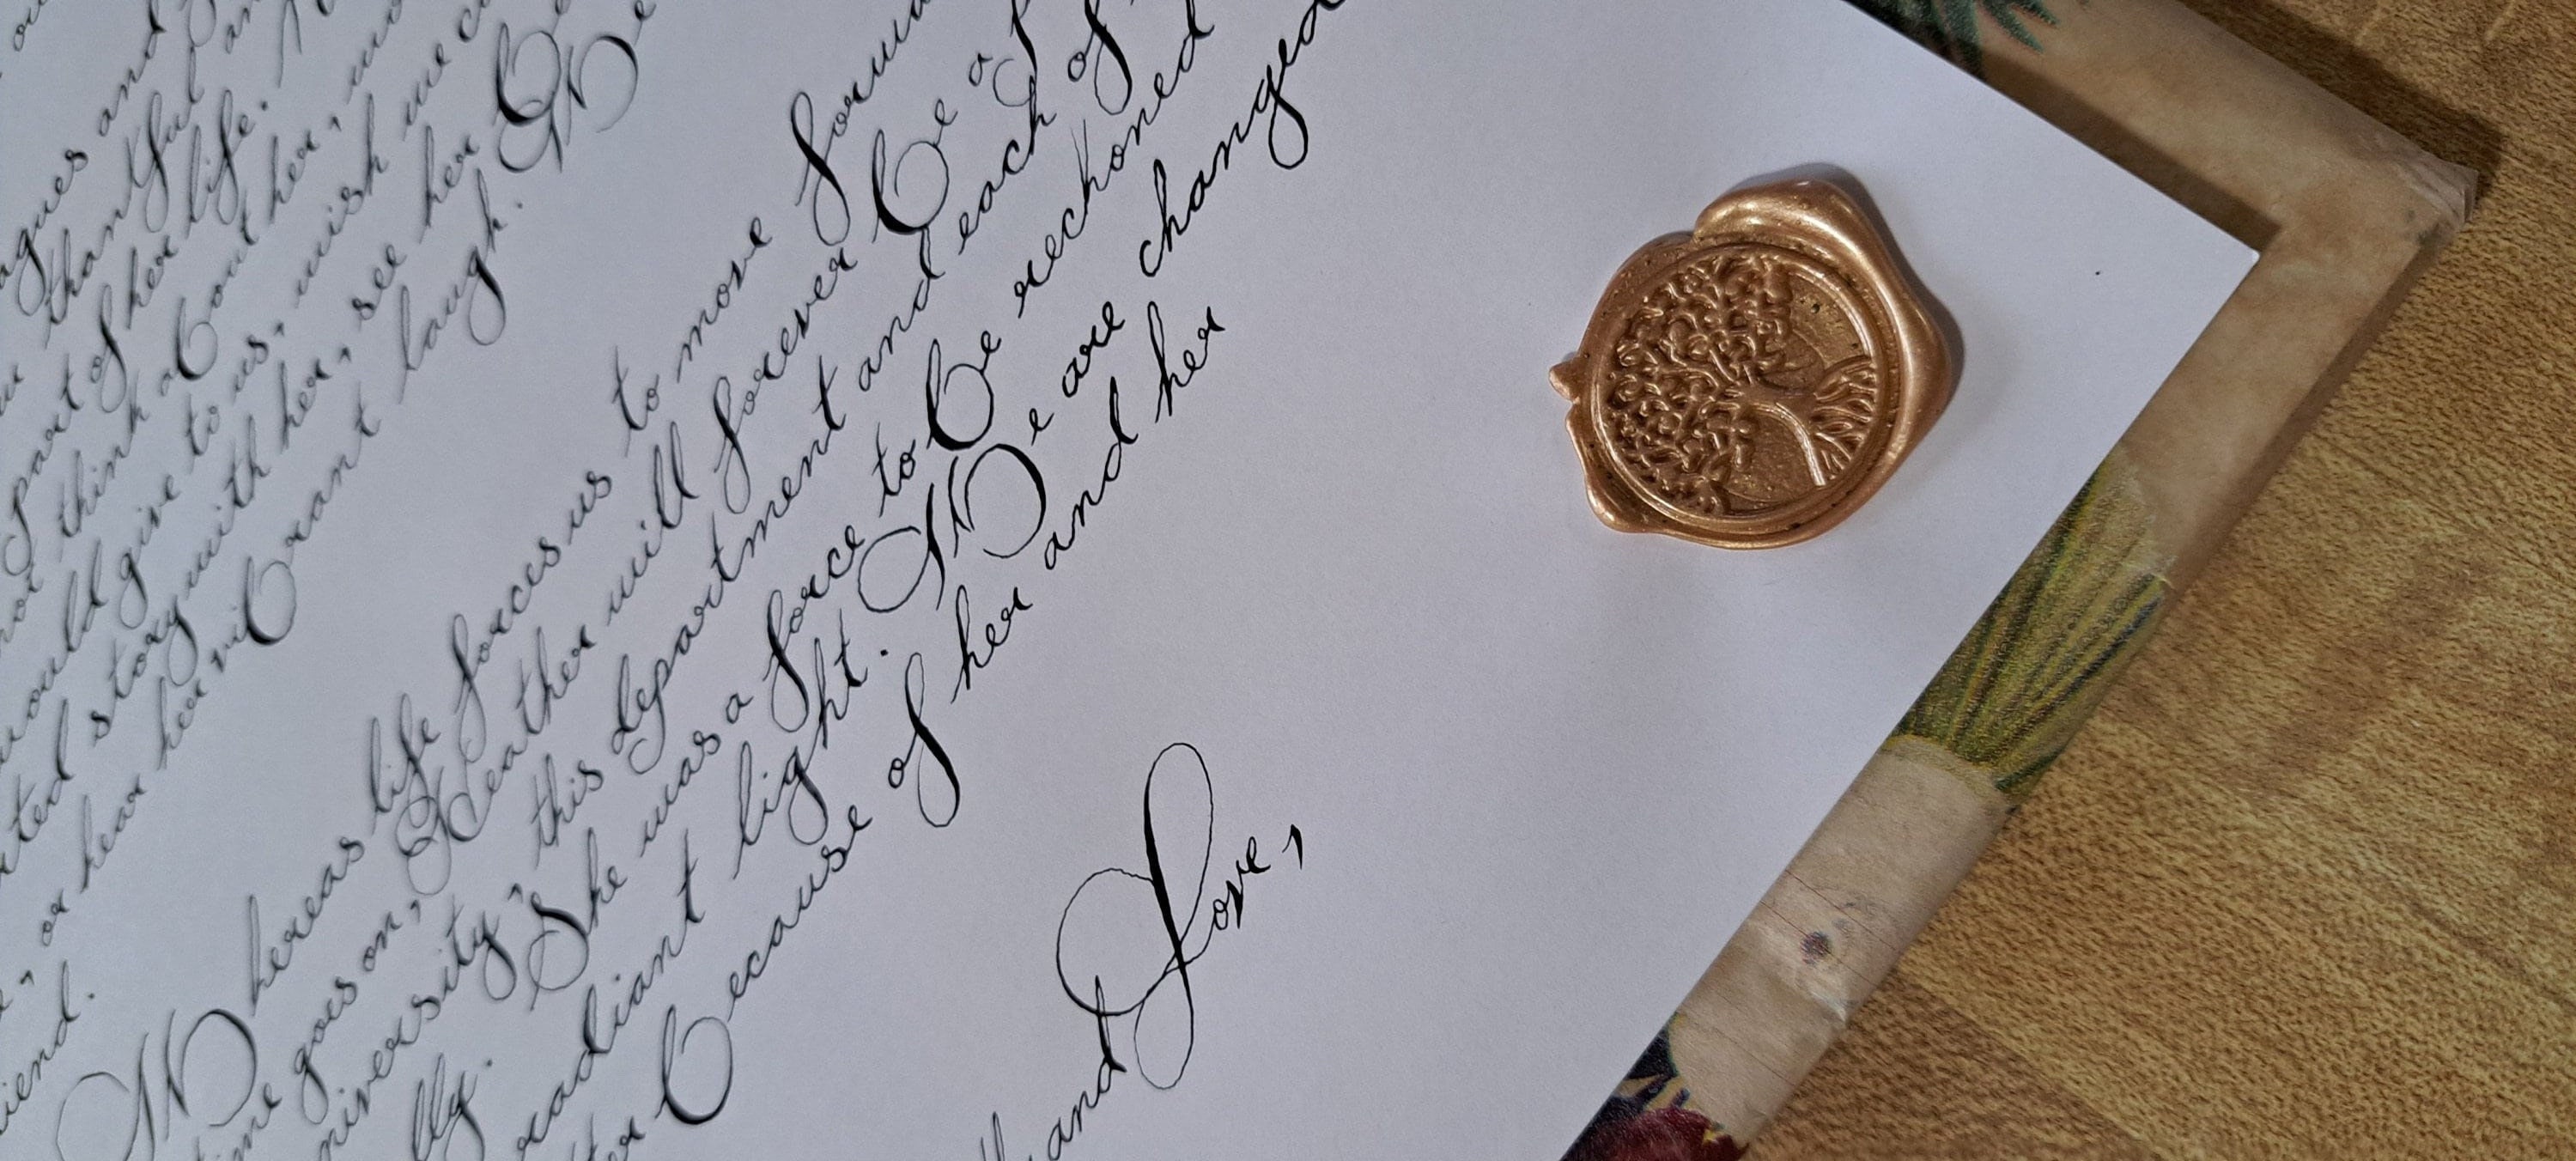 and
thankful
part of her life.
think about her,
would give to us, wish we
story with her, see her
, or hear her vibrant laugh. We
Whereas life forces us to move
goes on, Heather will forever be a
this department and each of
She was a force to be reckoned
radiant light. We are changed
because of her and her
and Love,